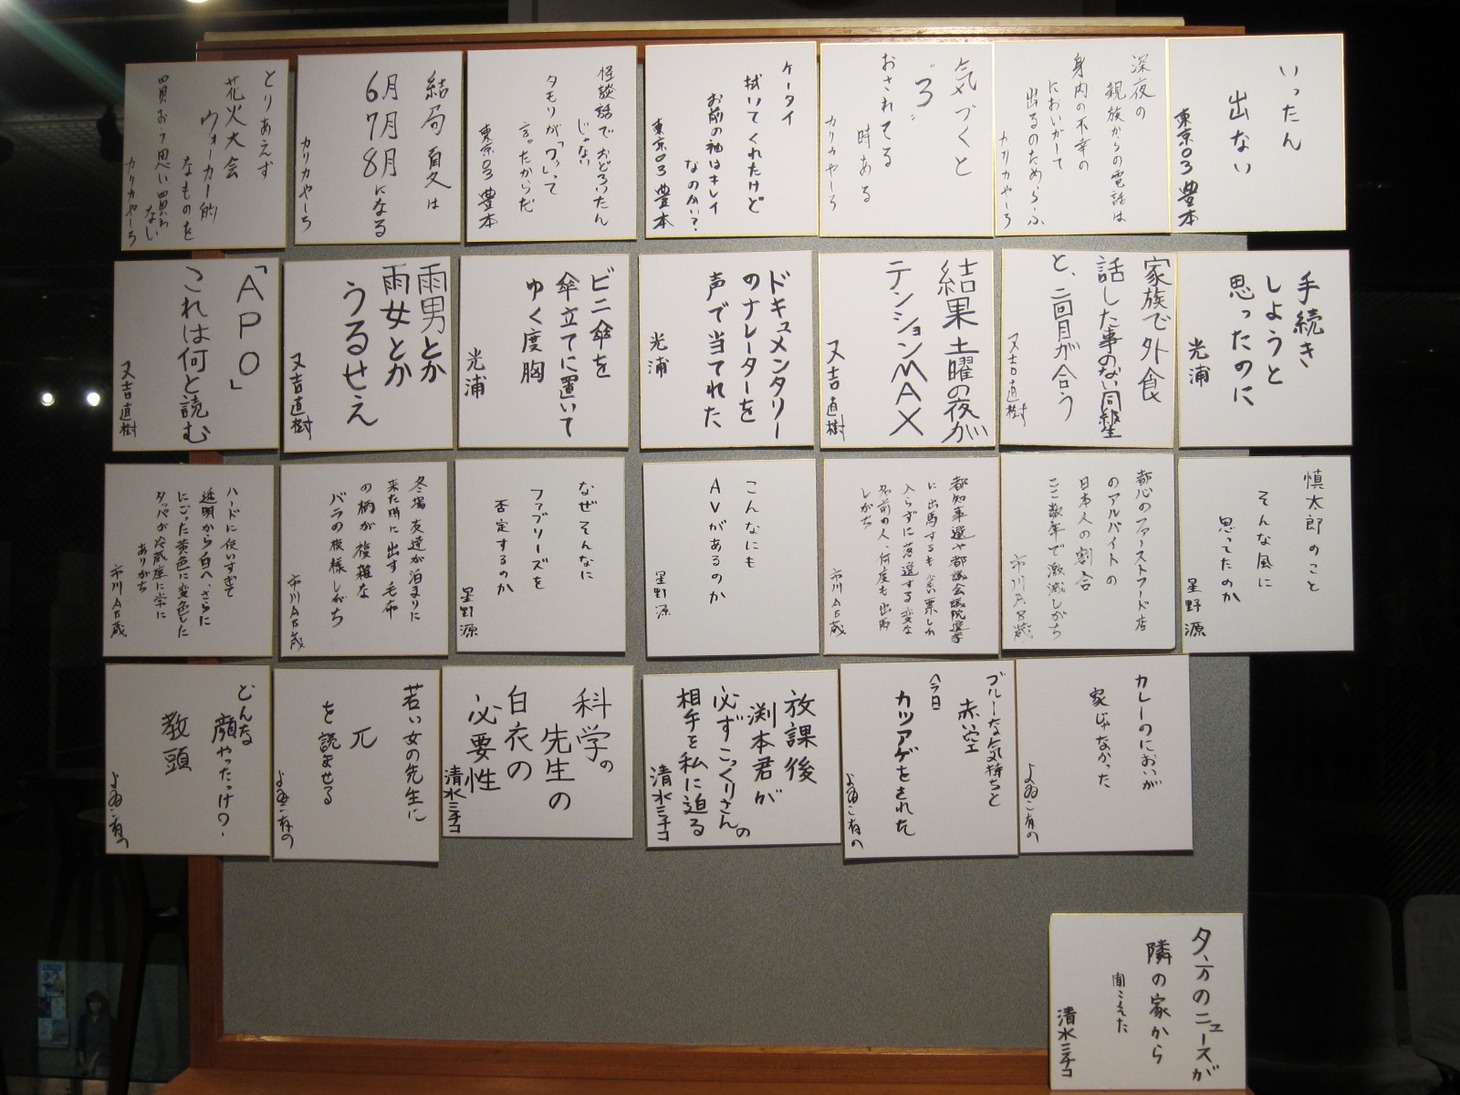 いったん
出ない
東京03 豊本
深夜の
親族からの電話は
身内の不幸の
においがして
出るのためらふ
カリカやしろ
気づくと
”3”
おされてる
時ある
カリカやしろ
ケータイ
拭いてくれたけど
お前の袖はキレイ
なのかい?
東京03 豊本
怪談話でおどろいたん
じゃない
タモリが「ワッ」って
言ったからだ
東京03 豊本
結局夏は
6月
7月
8月になる
カリカやしろ
とりあえず
花火大会
ウォーカー的
なものを
買おう思い買わ
ない
カリカやしろ
手続き
しようと
思ったのに
光浦
家族で外食
話した事のない同級生
と、二回目が合う
又吉直樹
結果土曜の夜が
テンションMAX
又吉直樹
ドキュメンタリー
のナレーターを
声で当てれた
光浦
ビニ傘を
傘立てに置いて
ゆく度胸
光浦
雨男とか
雨女とか
うるせえ
又吉直樹
「APO」
これは何と読む
又吉直樹
慎太郎のこと
そんな風に
思ってたのか
星野源
都心のファーストフード店
のアルバイトの
日本人の割合
ここ数年で激減しがち
市川AB蔵
都知事選や都議会議院選挙
に出馬するも票しれ
入らずに落選する変な
名前の人、何度も出馬
しがち
市川AB蔵
こんなにも
AVがあるのか
星野源
なぜそんなに
ファブリーズを
否定するのか
星野源
冬場友達が泊まりに
来た時に出す毛布
の柄が複雑な
バラの模様しがち
市川AB蔵
ハードに使いすぎて
透明から白へ、さらに
にごった黄色に変色した
タッパが冷蔵庫に常に
ありがち
市川AB蔵
カレーのにおいが
家じゃなかった
よゐこ有の
ブルーな気持ちと
赤い空
今日
カツアゲをされた
よゐこ有の
放課後
渕本君が
必ずこっくりさんの
相手を私に迫る
清水ミチコ
科学の
先生の
白衣の
必要性
清水ミチコ
若い女の先生に
π
を読ませる
よゐこ有の
どんな
顔やったっけ?
教頭
よゐこ有の
夕方のニュースが
隣の家から
聞こえた
清水ミチコ